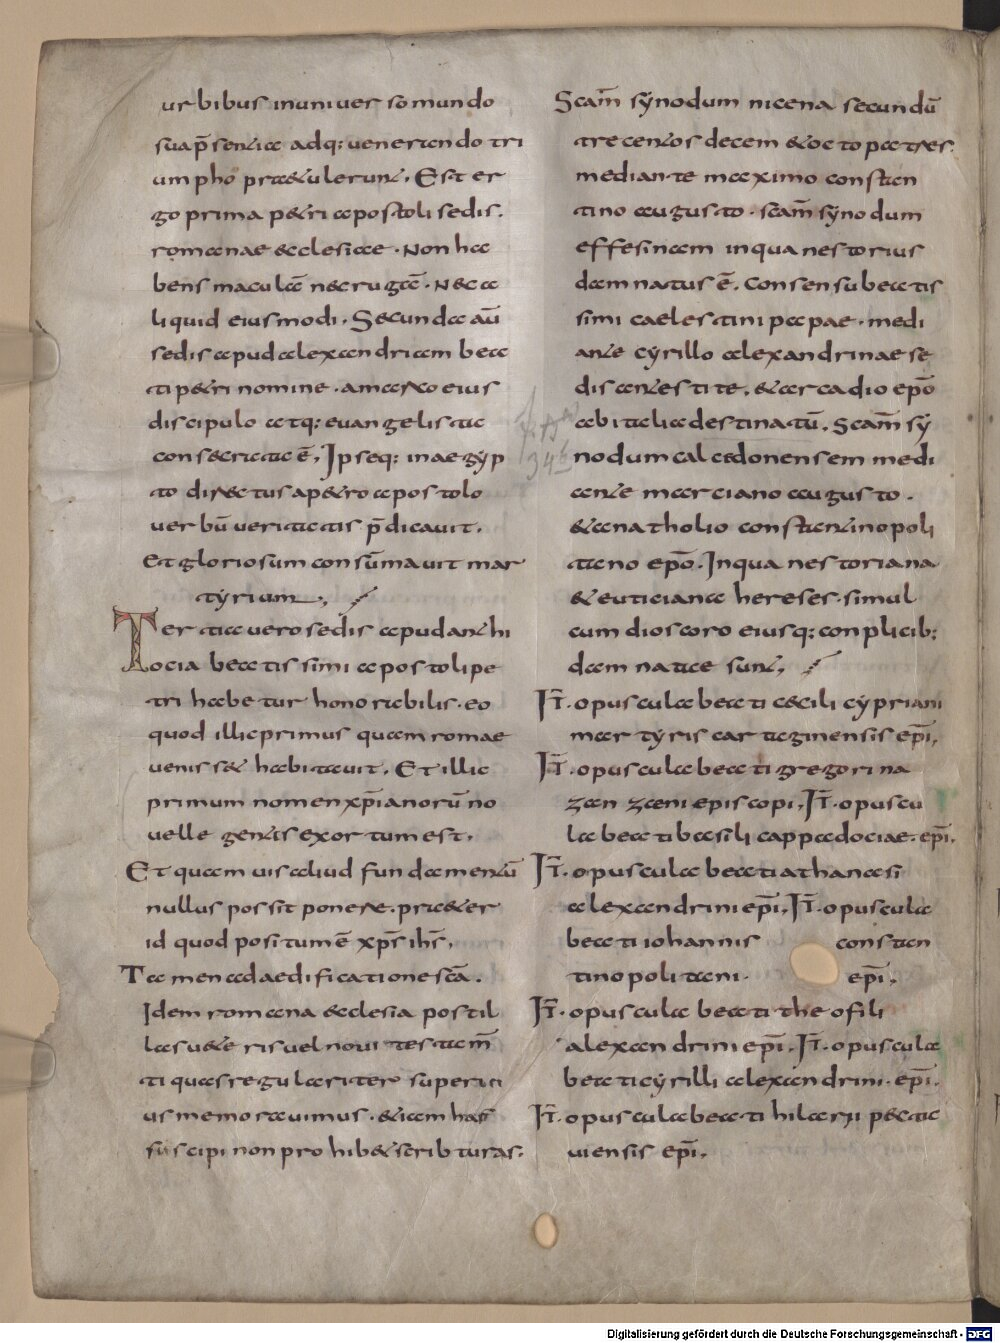 urbibus in uniuerso mundo
sua p̄sentia adq: uenerando tri
umpho praetulerunt. Est er
go prima petri apostoli sedis.
romanae ecclesiae. Non ha
bens maculā nec rugā. Nec a
liquid eiusmodi. Secunda aū
sedis apud alexandriam bea
ti petri nomine. a marco eius
discipulo atq: euangelista
consecrata ē, Ipseq: in aegyp
to directus a petro apostolo
uerbū ueritatis p̄dicauit.
Et gloriosum consūmauit mar
tyrium,
Tertia uero sedis apud anthi
ocia beatissimi apostoli pe
tri habetur honorabilis. eo
quod illic primus quam romae
uenisset habitauit. Et illic
primum nomen xp̄ianorū no
uelle gentis exortum est.
Et quam uis aliud fundamentū
nullus possit ponere. praeter
id quod positum ē xp̄s ih̄s,
Tamen ad aedificatione sc̄a.
Idem romana ecclesia post il
las ueteris uel noui testam̄
ti quas regulariter superi
us memorauimus. etiam has
suscipi non prohibet scribturas.
Sc̄am synodum nicena secundū
trecentos decem et octo patres.
mediante maximo constan
tino augusto. sc̄am synodum
effesinam in qua nestorius
damnatus ē. Consensu beatis
simi caelestini papae. medi
ante cyrillo alexandrinae se
dis antestite. et arcadio ep̄o
ab italia destinatū. Sc̄am sy
nodum calcedonensem medi
ante marciano augusto.
et anatholio constantinopoli
tano ep̄o. In qua nestoriana
et euticiana hereses. simul
cum dioscoro eiusq: conplicib:
damnatae sunt,
IT̄. opuscula beati cecili cypriani
martyris cartaginensis ep̄i,
IT̄. opuscula beati gregori na
zanzeni episcopi, IT̄. opuscu
la beati basili cappadociae. ep̄i.
IT̄. opuscula beati athanasi
alexandrini ep̄i, IT̄. opuscula
beati iohannis constan
tinopolitani. ep̄i,
IT̄. opuscula beati theofili
alexandrini ep̄i. IT̄. opuscula
beati cyrilli alexandrini. ep̄i.
IT̄. opuscula beati hilarii pecta
uiensis ep̄i.
Digitalisierung gefördert durch die Deutsche Forschungsgemeinschaft - DFG